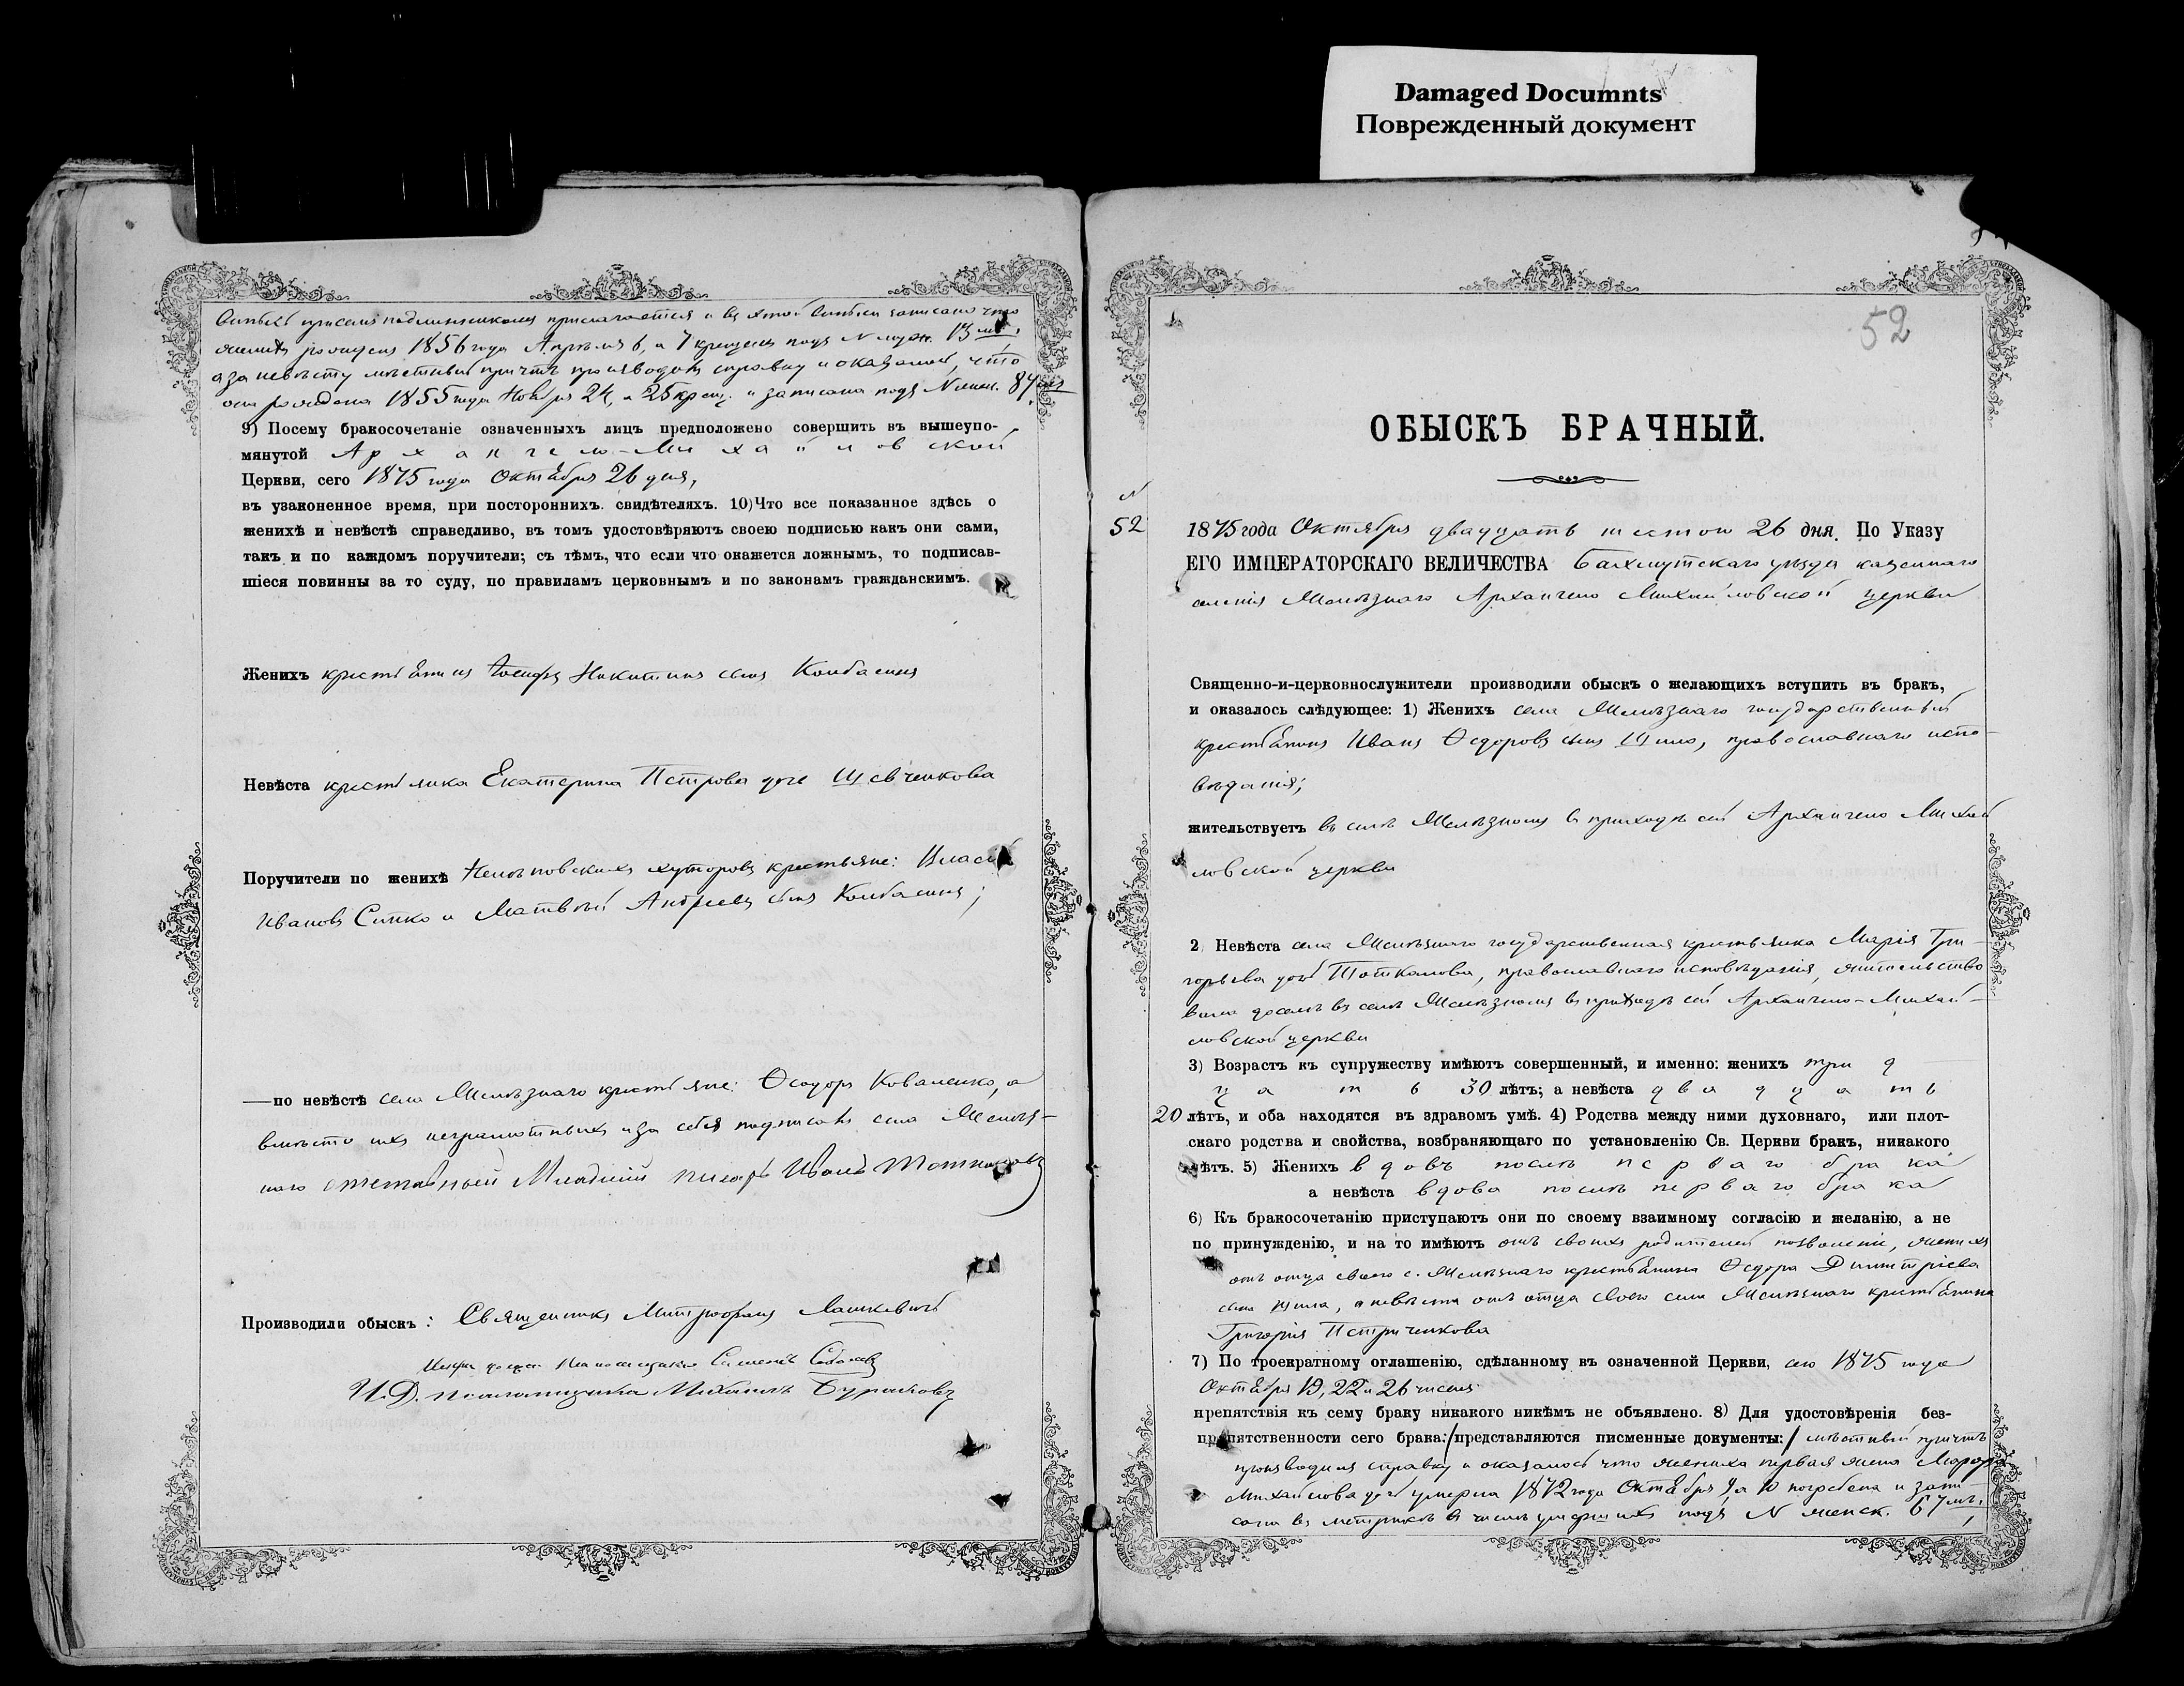 Damaged Documnts
Поврежденный документ
женихъ рожденъ 1856 года Апрѣля 6, а 7 крещенъ подъ N муж. 13мъ,
а за невѣсту мѣстный причтъ производилъ справку и оказалось, что
она рождена 1855 года Ноября 24, а 25 крещ. и записана подъ N жен.
9) Посему бракосочетаніе означенныхъ лицъ предположено совершить въ вышеупо-
мянутой Архангело-Михайловской
Церкви, сего 1875 года Октября 26 дня,
въ узаконенное время, при постороннихъ. свидѣтеляхъ. 10) Что все показанное здѣсь о
женихѣ и невѣстѣ справедливо, въ томъ удостовѣряютъ своею подписью какъ они сами,
такъ и по каждомъ поручители; съ тѣмъ, что если что окажется ложнымъ, то подписав-
шіеся повинны за то суду, по правиламъ церковнымъ и по законамъ гражданскимъ.
Женихъ крестьянинъ Іосифъ Никитинъ сынъ Колбасинъ
Невѣста крестьянка Екатерина Петрова доч Шевченкова
Поручители по женихѣ хуторовъ крестьяне: Власій
Ивановъ Сипко и Матвѣй Андреевъ сынъ Колбасинъ;
— по невѣстѣ села Желѣзнаго крестьяне: Ѳеодоръ Коваленко, а
вмѣсто ихъ неграмотныхъ и за себя подписалъ села Желѣз-
наго отставный Младшій писарь Иванъ
Производили обыскъ: Священникъ Митрофанъ Лашкевичъ
И.Д. псаломщика Михаилъ Бураковъ
52
ОБЫСКЪ БРАЧНЫЙ.
N
52
1875 года Октября двадцать шестого 26 дня. По Указу
ЕГО ИМПЕРАТОРСКАГО ВЕЛИЧЕСТВА Бахмутскаго уѣзда казеннаго
селенія Желѣзнаго Архангело Михайловской церкви
Священно-и-церковнослужители производили обыскъ о желающихъ вступить въ бракъ,
и оказалось слѣдующее: 1) Женихъ села Желѣзнаго государственный
крестьянинъ Иванъ Ѳедоровъ сынъ Шило, православнаго испо-
вѣданія;
жительствуетъ въ селѣ Желѣзномъ въ приходѣ сей Архангело Михай
ловской церкви
2 Невѣста села Желѣзнаго государственная крестьянка Марія Гри-
горьева доч Тоткалова, православнаго исповѣданія, жительство
вала доселѣ въ селѣ Желѣзномъ въ приходѣ сей Архангело-Михай-
ловской церкви
3) Возрастъ къ супружеству имѣютъ совершенный, и именно: женихъ трид
цать 30 лѣтъ; а невѣста двадцать
20 лѣтъ, и оба находятся въ здравомъ умѣ. 4) Родства между ними духовнаго, или плот-
скаго родства и свойства, возбраняющаго по установленію Св. Церкви бракъ, никакого
нѣтъ. 5) Женихъ вдовъ послѣ перваго брака
а невѣста вдова послѣ перваго брака
6) Къ бракосочетанію приступаютъ они по своему взаимному согласію и желанію, а не
по принужденію, и на то имѣютъ отъ своихъ родителей позволеніе, женихъ
отъ отца своего с. Желѣзнаго крестьянина Ѳедора Димитріева
сына Шила, а невѣста отъ отца своего села Желѣзнаго крестьянина
Григорія Петриченкова
7) По троекратному оглашенію, сдѣланному въ означенной Церкви, сего 1875 года
Октября 19, 22 и 26 числъ
препятствія къ сему браку никакого никѣмъ не объявлено. 8) Для удостовѣренія без-
препятственности сего брака: / представляются писменные документы: / мѣстный причтъ
производилъ справку и оказалось что жениха первая жена Марфа
Михайлова доч умерла 1872 года Октября 9 а 10 погребена и запи-
сана въ метрикѣ въ числѣ умершихъ подъ N женск. 67мъ,